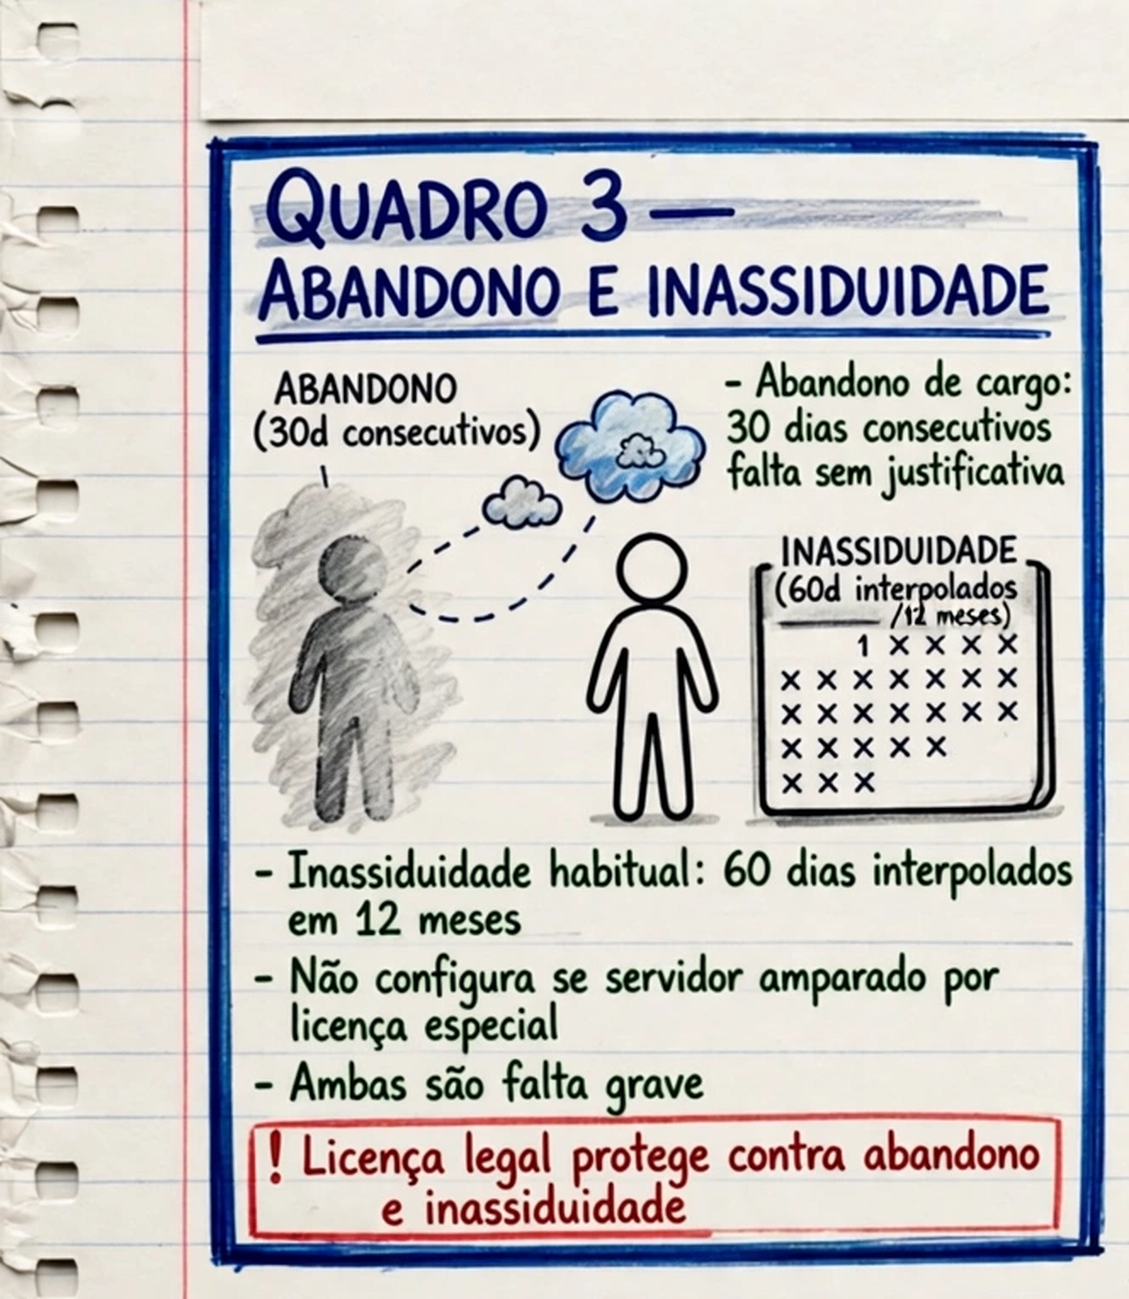 QUADRO 3 —
ABANDONO E INASSIDUIDADE
ABANDONO
(30d consecutivos)
- Abandono de cargo:
30 dias consecutivos
falta sem justificativa
INASSIDUIDADE
(60d interpolados
/12 meses)
1 x x x x
x x x x x x x
x x x x x x x
x x x x x
x x x
- Inassiduidade habitual: 60 dias interpolados
em 12 meses
- Não configura se servidor amparado por
licença especial
- Ambas são falta grave
! Licença legal protege contra abandono
e inassiduidade